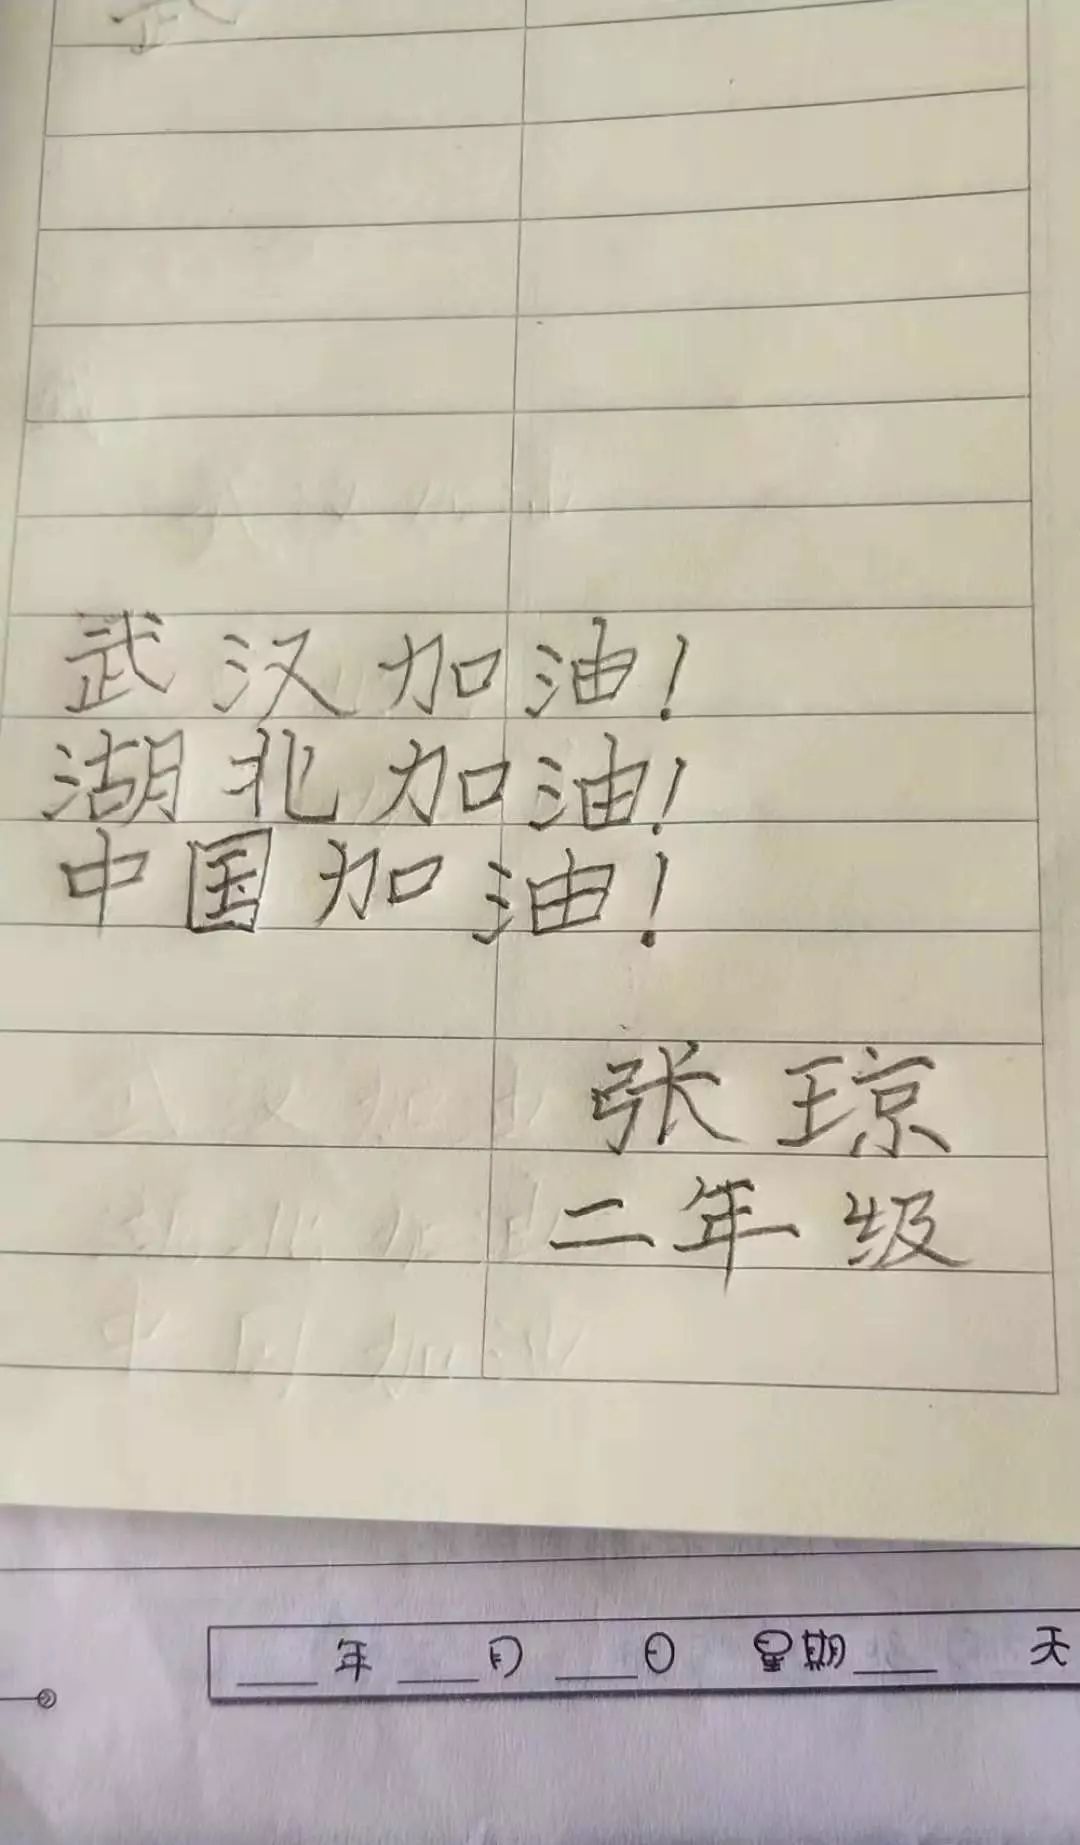 武汉加油！
湖北加油！
中国加油！
张琼
二年级
年 月 日 星期 天